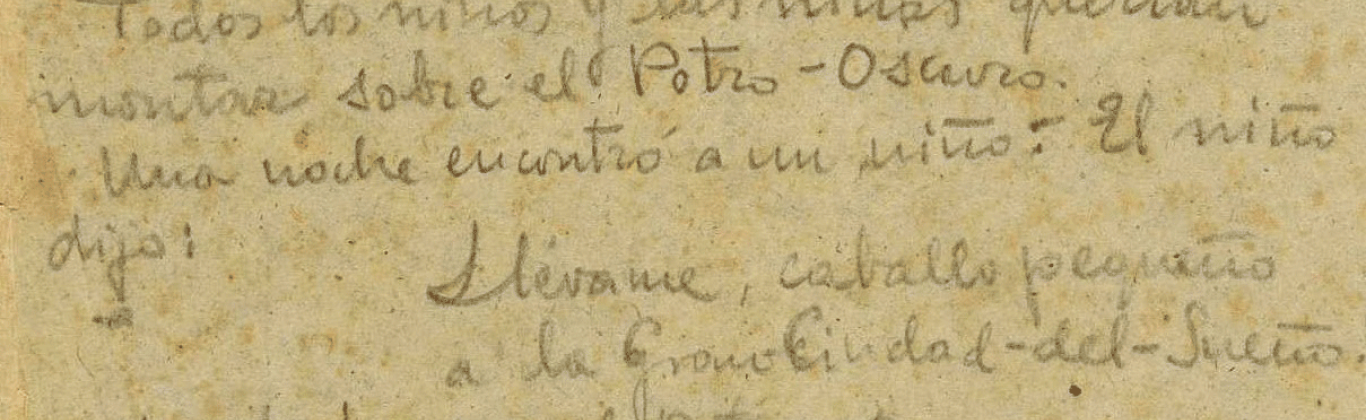 Todos los niños y las niñas querían
montar sobre el Potro-Oscuro.
Una noche encontró a un niño. El niño
dijo:
Llévame, caballo pequeño
a la Gran Ciudad-del-Sueño.